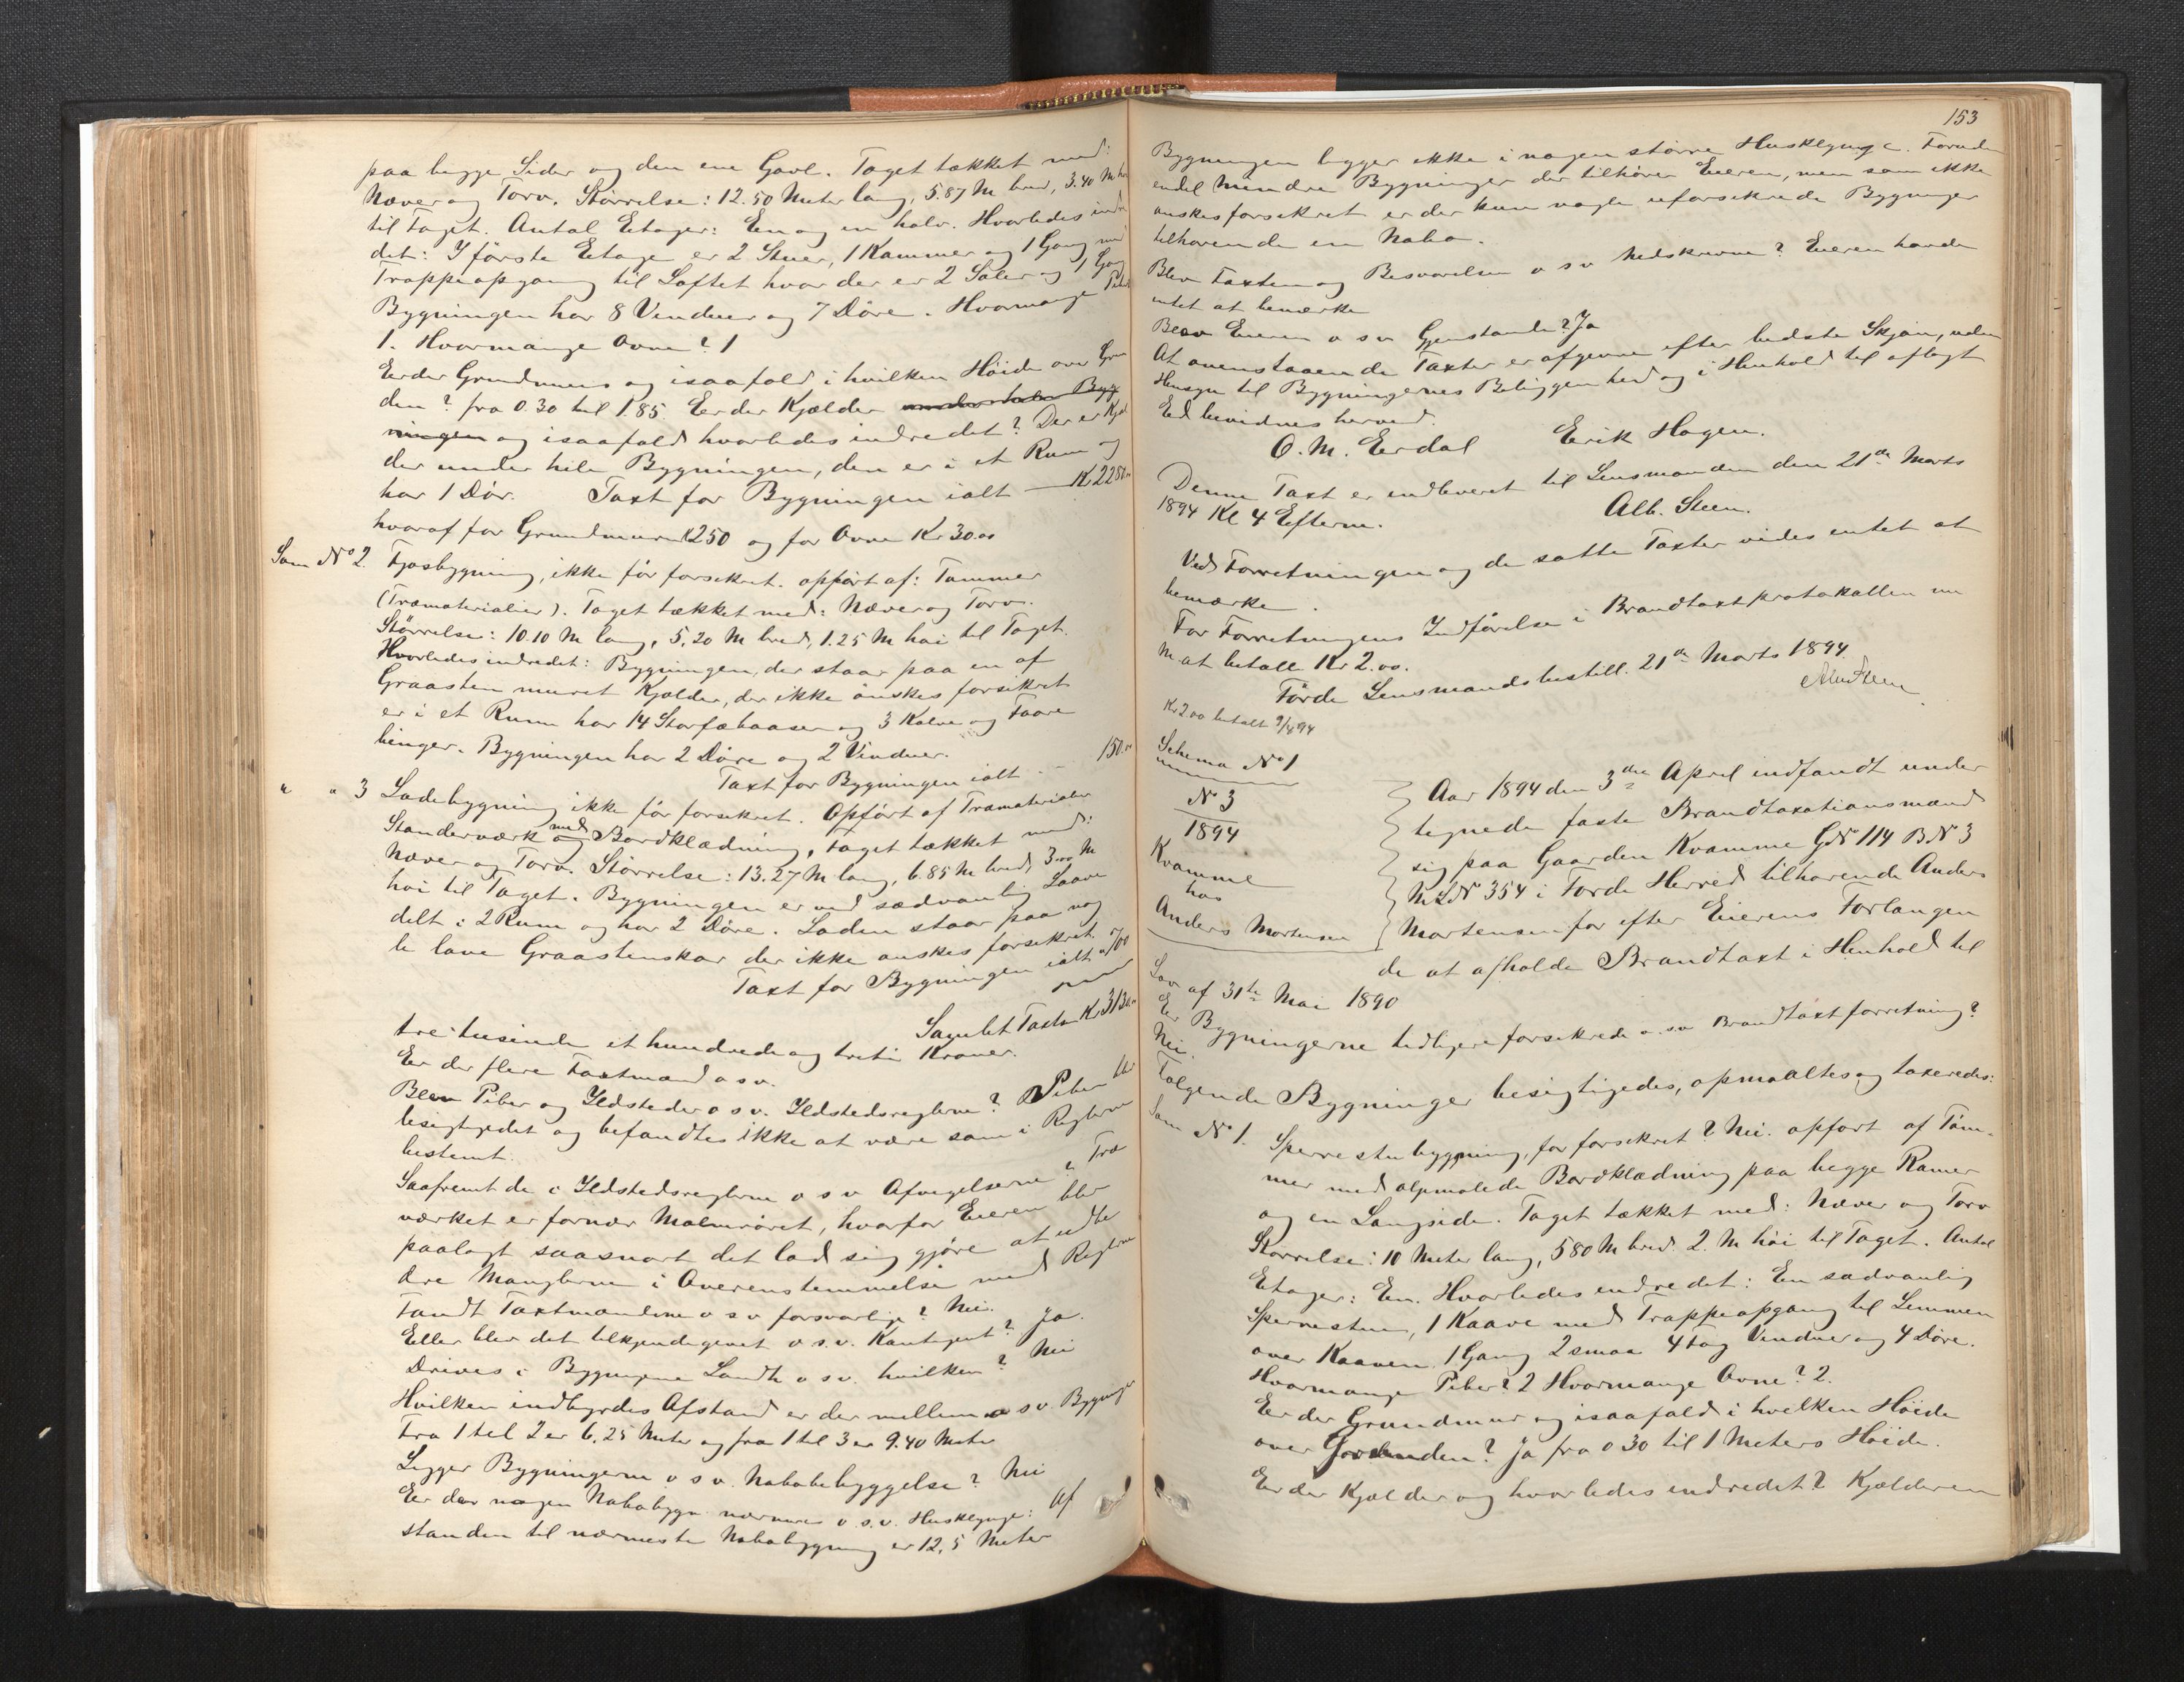 paa begge Sider og den ene Gavl. Taget tækket med:
Næver og Torv. Størrelse: 12.50 Meter lang, 5.87 M bred, 3.40 M
til Taget. Antal Etager: En og en halv. Hvorledes ind
det: I første Etage er 2 Stuer, 1 Kammer og 1 Gang med
Trappeopgang til Loftet hvor der er 2 Saler og 1 Gang
Bygningen har 8 Vinduer og 7 Døre. Hvormange
1. Hvormange Ovne? 1
Er der Grundmur og isaafald i hvilken Høide over Grun
den? fra 0.30 til 1.85 Er der Kjælder under hele Byg
ningen og isaafald hvorledes indredet? Der er Kjæl
der under hele Bygningen, den er i et Rum og
har 1 Dør. Taxt for Bygningen ialt — K 2280.00
hvoraf for Grundmuren K 250 og for Ovne Kr 30.00
Sam No 2. Fjøsbygning, ikke før forsikret. opført af: Tømmer
(Træmaterialier). Taget tækket med: Næver og Torv.
Størrelse: 10.10 M lang, 5,20 M bred, 1.25 M høi til Taget.
Hvorledes indredet: Bygningen, der staar paa en af
Graasten muret Kjælder, der ikke ønskes forsikret
er i et Rum har 14 Storfæbaaser og 3 Kalve og Faare
binger. Bygningen har 2 Døre og 2 Vinduer.
Taxt for Bygningen ialt - - 150.00
" " 3 Ladebygning ikke før forsikret. Opført af Træmaterialier
Standerværk og med Bordklædning, Taget tækket med:
Næver og Torv. Størrelse: 13.27 M lang, 6.85 M bred, 3.00 M
høi til Taget. Bygningen er ved sædvanlig Laave
delt i 2 Rum og har 2 Døre. Laden staar paa nog
le lave Graastenskar der ikke ønskes forsikret.
Taxt for Bygningen ialt " 700
Samlet Taxt Kr 3130.00
tre tusinde et hundrede og tretti Kroner.
Er der flere Taxtmænd o s v.
Blev Piber og Ildsteder o s v. Ildstedsreglerne? Piben blev
besigtiget og befandtes ikke at være som i Reglerne
bestemt.
Saafremt de i Ildstedsreglerne o s v Afvigelserne? Træ
værket er for nær Malmrøret, hvorfor Eieren blev
paalagt saasnart det lod sig gjøre at udbe
dre Manglerne i Overenstemmelse med Reglerne
Fandt Taxtmændene o s v forsvarlige? Nei.
Eller blev det tilkjendegivet o.s.v. Kontigent? Ja.
Drives i Bygningerne Landh o s v. hvilken? Nei
Hvilken indbyrdes Afstand er der mellem o s v. Bygninger
Fra 1 til 2 er 6,25 Meter og fra 1 til 3 er 9.40 Meter
Ligger Bygningerne o s v. Nabobebyggelse? Nei
Er der nogen Nabobygn nærmere o.s.v. Husklynge: Af
standen til nærmeste Nabobygning er 12,5 Meter
153
Bygningen ligger ikke i nogen større Husklynge. Foruden
endel mindre Bygninger der tilhører Eieren, men som ikke
ønskes forsikret er der kun nogle uforsikrede Bygninger
tilhørende en Nabo.
Blev Taxten og Besvarelsen o s v Nedskrevne? Eieren havde
intet at bemærke
Beror Eieren o s v Gjenstande? Ja
At ovenstaaende Taxter er afgivne efter bedste Skjøn, uden
Hensyn til Bygningernes Beliggenhed og i Henhold til aflagt
Ed bevidnes herved.
O. M. Erdal Erik Hagen.
Denne Taxt er indleveret til Lensmanden den 21de Marts
1894 Kl 4 Efterm. Alb. Steen.
Ved Forretningen og de satte Taxter vides intet at
bemærke.
For Forretningens Indførelse i Brandtaxtprotokollen m
M. at betale Kr 2.00.
Førde Lensmandsbestill. 21de Marts 1894.
Alb Steen
Kr 2 00 betalt 9/4 94
Schema No 1
No 3
1894
Kvamme
hos
Anders Mortensen
Aar 1894 den 3die April indfandt under
tegnede faste Brandtaxationsmænd
sig paa Gaarden Kvamme GNo 114 BNo 3
MLNo 354 i Førde Herred tilhørende Anders
Mortensen for efter Eierens Forlangen
de at afholde Brandtaxt i Henhold til
Lov af 31te Mai 1890
Er Bygningerne tidligere forsikrede o. s. v Brandtaxtforretning?
Nei.
Følgende Bygninger besigtigedes, opmaaltes og taxeredes:
Sam No 1. Sperrestubygning, før forsikret? Nei. opført af Tøm-
mer med oljemalede Bordklædning paa begge Ramer
og en Langside. Taget tækket med: Næver og Torv
Størrelse: 10 Meter lang, 5 80 M bred. 2. M høi til Taget. Antal
Etager: En. Hvorledes indredet: En sædvanlig
Sperrestue, 1 Kaave med Trappeopgang til Lemmen
over Kaaven. 1 Gang 2 smaa 4 fag Vinduer og 4 Døre.
Hvormange Piber? 2 Hvormange Ovne? 2.
Er der Grundmur og isaafald i hvilken Høide
over Grunden? Ja fra 0 30 til 1 Meters Høide.
Er der Kjælder og hvorledes indredet? Kjælderen